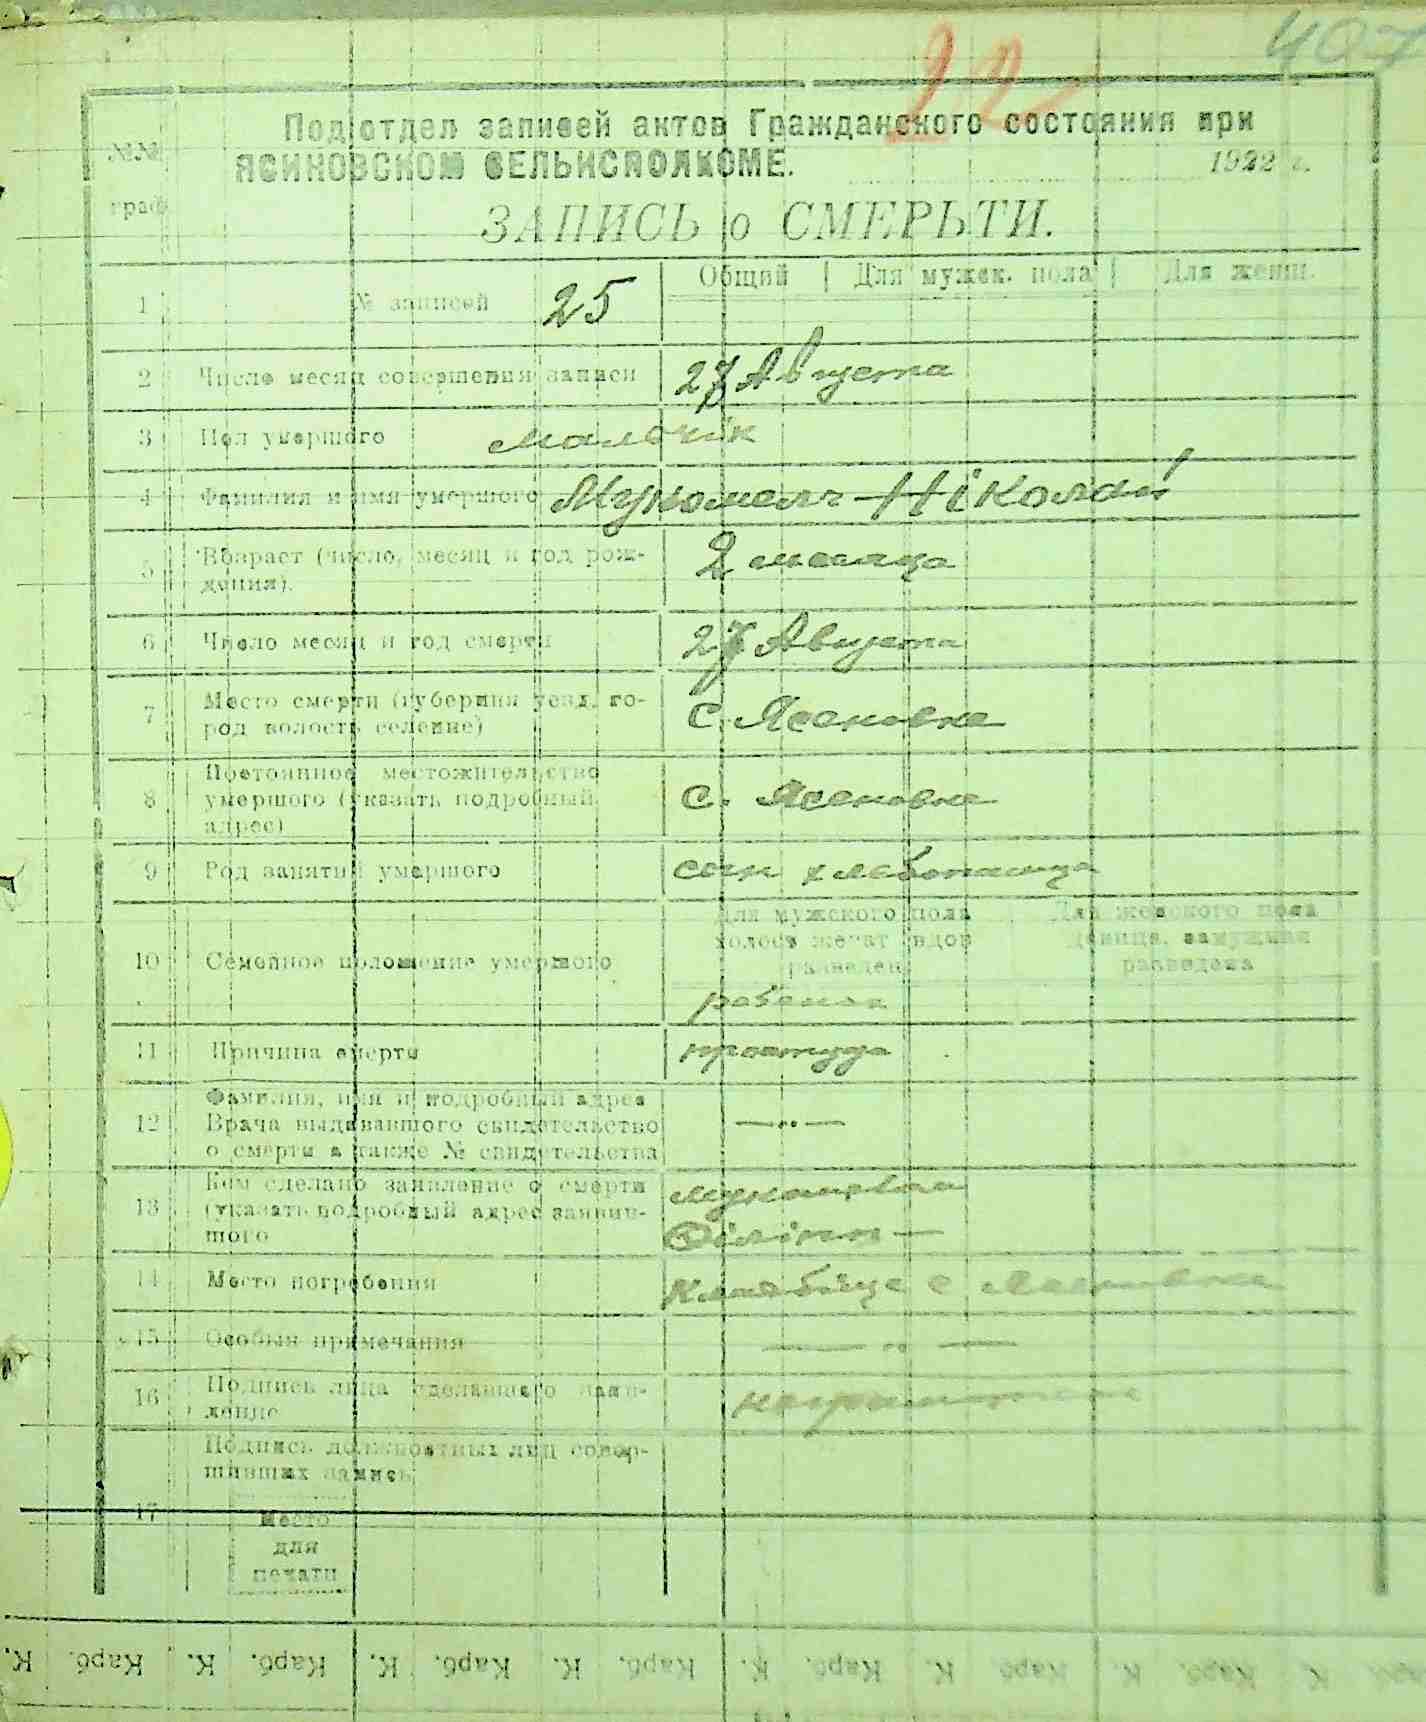 407
22
Подотдел записей актов Гражданского состояния при
ЯСИНОВСКОМ СЕЛЬИСПОЛКОМЕ.
1922 г.
№№ граф
ЗАПИСЬ о СМЕРЬТИ.
Общий | Для мужск. пола | Для женщ.
1 № записей 25
2 Число месяц совершения записи 27 Августа
3 Пол умершого мальчік
4 Фамилия и имя умершого Ніколай
5 Взараст (число, месяц и год рож-
дения). 2 месяца
6 Число месяц и год смерти 27 Августа
7 Место смерти (губерния уезд. го-
род волость селение) с. Ясеновка
8 Постоянное местожительство
умершого (указать подробный
адрес) с. Ясеновка
9 Род занятий умершого сын хлебопашца
10 Семейное положение умершого
Для мужского пола
холост женат вдов
разведен
Для женского пола
девица, замужняя
разведена
ребенок
11 Причина смерти простуда
12 Фамилия, имя и подробный адрес
Врача выдававшого свидетельство
о смерти а также № свидетельства — „ —
13 Кем сделано заявление о смерти
(указать подробный адрес заявив-
шого Філіпп —
14 Место погребения Кладбіще с Ясеновка
15 Особыя примечания — „ —
16 Подпись лица сделавшего заяв-
ление неграмотен
17 Подпись должностных лиц совер-
шивших запись
Место
для
печати
К. Карб. К. Карб. К. Карб. К. Карб. К. Карб. К. Карб. К. Карб. К.